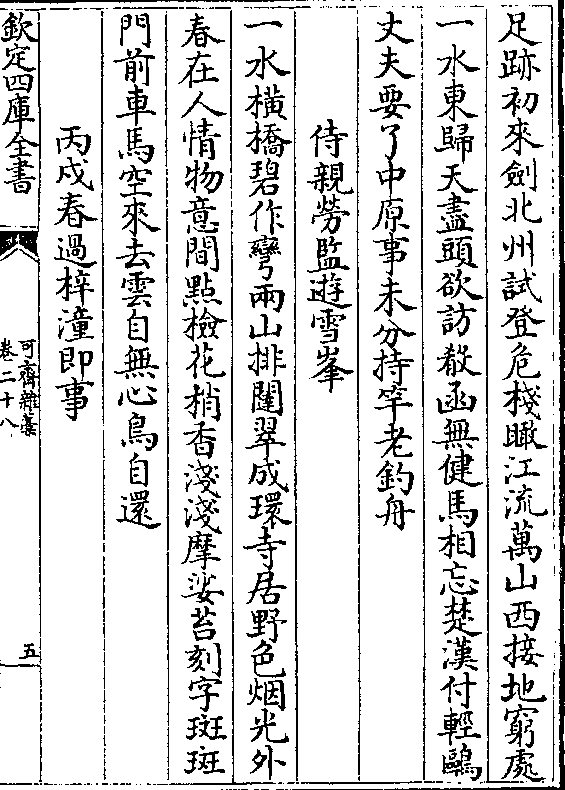 足跡初來劍北州試登危棧瞰江流萬山西接地窮處
一水東歸天盡頭欲訪殽函無健馬相忘楚漢付輕鷗
丈夫要了中原事未分持竿老釣舟
侍親勞監遊雪峯
一水橫橋碧作彎兩山排闥翠成環寺居野色烟光外
春在人情物意間點檢花梢香淺淺摩挲苔刻字斑斑
門前車馬空來去雲自無心鳥自還
丙戍春過梓潼即事
欽定四庫全書
可齋雜藁
卷二十八
五